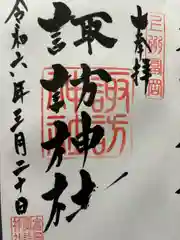 奉拝
諏訪神社
諏訪神社
令和六年三月二十日